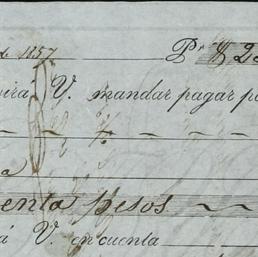 1857 P.r $ 2
V. mandar pagar p
a
enta pesos
á V. en cuenta